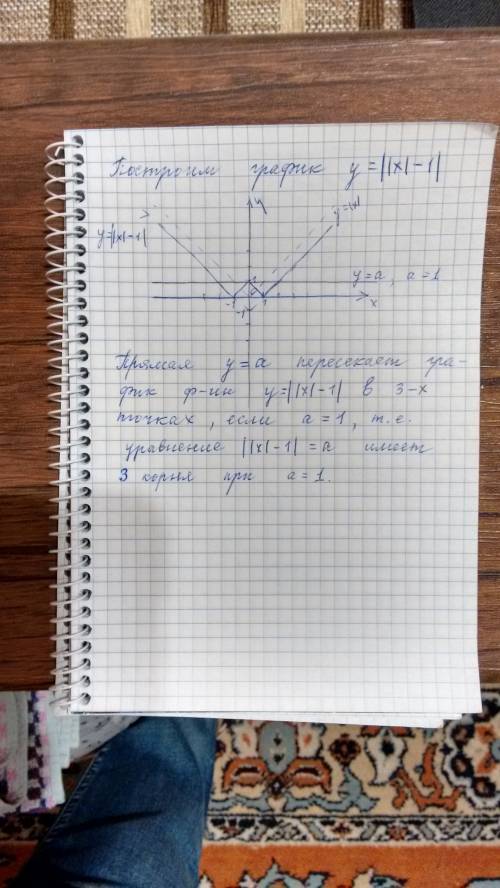 Построим график y=||x|-1|
y
y=|x|
y=||x|-1|
y=a, a=1
-1 1 x
-1
Прямая y=a пересекает гра-
фик ф-ии y=||x|-1| в 3-х
точках, если a=1, т.е.
уравнение ||x|-1|=a имеет
3 корня при a=1.